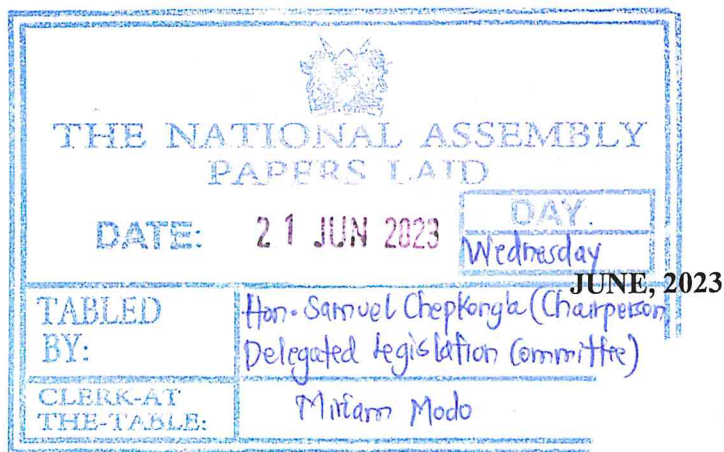 THE NATIONAL ASSEMBLY
PAPERS LAID
DATE: 21 JUN 2023
DAY.
Wednesday
JUNE, 2023
TABLED BY:
Hon. Samuel Chepkonga (Chairperson,
Delegated Legislation Committee)
CLERK-AT
THE-TABLE:
Miriam Modo